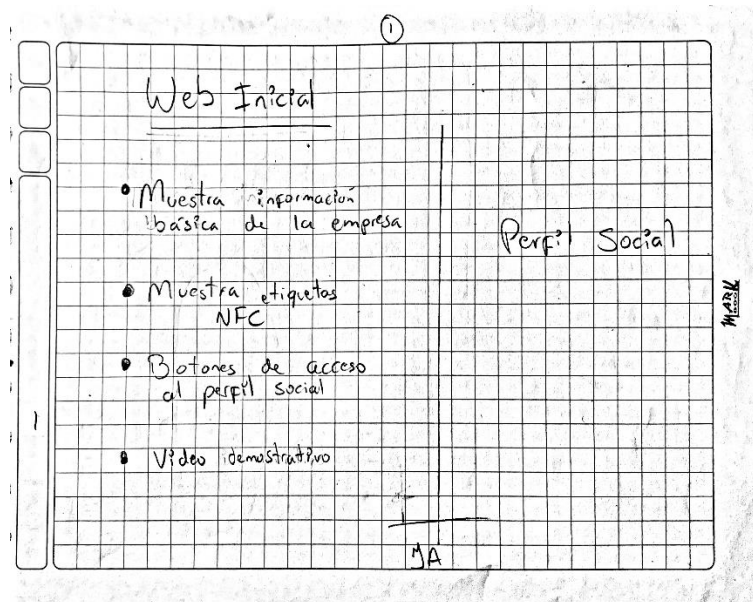 1
Web Inicial
Muestra información
básica de la empresa
Muestra etiquetas
NFC
Botones de acceso
al perfil social
Video demostrativo
Perfil Social